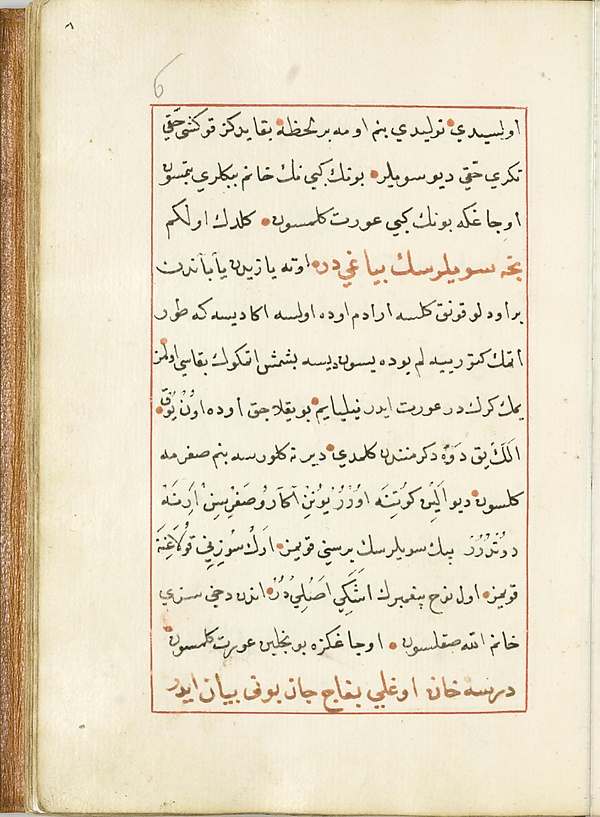 ٨
6
اولسيدي توليدي بنم اومه بر لحظه بقايدكز قوكشی حقي
تكري حقي ديو سويلر بونك كبي نك خانم ببكلري بتمسون
اوجاغكه بونك كبي عورت كلمسون كلدك اولكم
نجه سويلرسك بياغي در اوته يازيدن يابآندن
بر اودلو قونق كلسه ار ادم اوده اولسه اكا ديسه كه طور
اتمك كتور ييه لم بو ده يسون ديسه بشمش اتمكوك بقاسي اولمز
يمك كرك در عورت ايدر نيليايم بو يقلاجق اوده اون يوق
الك يق دوه دكرمنندن كلمدي دير نه كلورسه بنم صغرمه
كلسون ديو الين كوتنه اورر يونن اكارو صغريسن ارينه
دوندرر بيك سويلرسك برسني قويمز ارك سوزيني قولاغنه
قويمز اول نوح پيغمبرك اشكي اصلي در اندن دخي سزي
خانم الله صقلسون اوجاغكزه بونجلين عورت كلمسون
درسه خان اوغلي بغاج جان بوني بيان ايدر